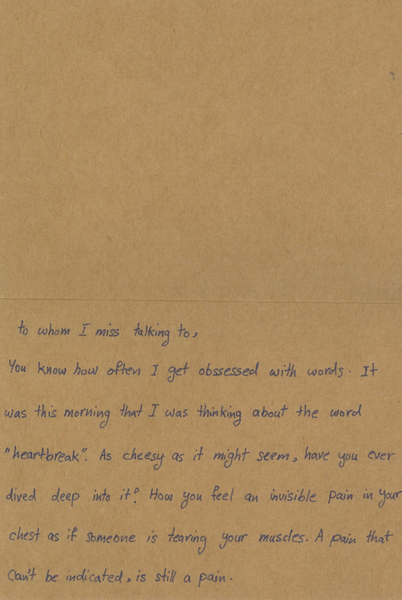 to whom I miss talking to,
You know how often I get obssessed with words. It
was this morning that I was thinking about the word
"heartbreak". As cheesy as it might seem, have you ever
dived deep into it? How you feel an invisible pain in your
chest as if someone is tearing your muscles. A pain that
Can't be indicated, is still a pain.